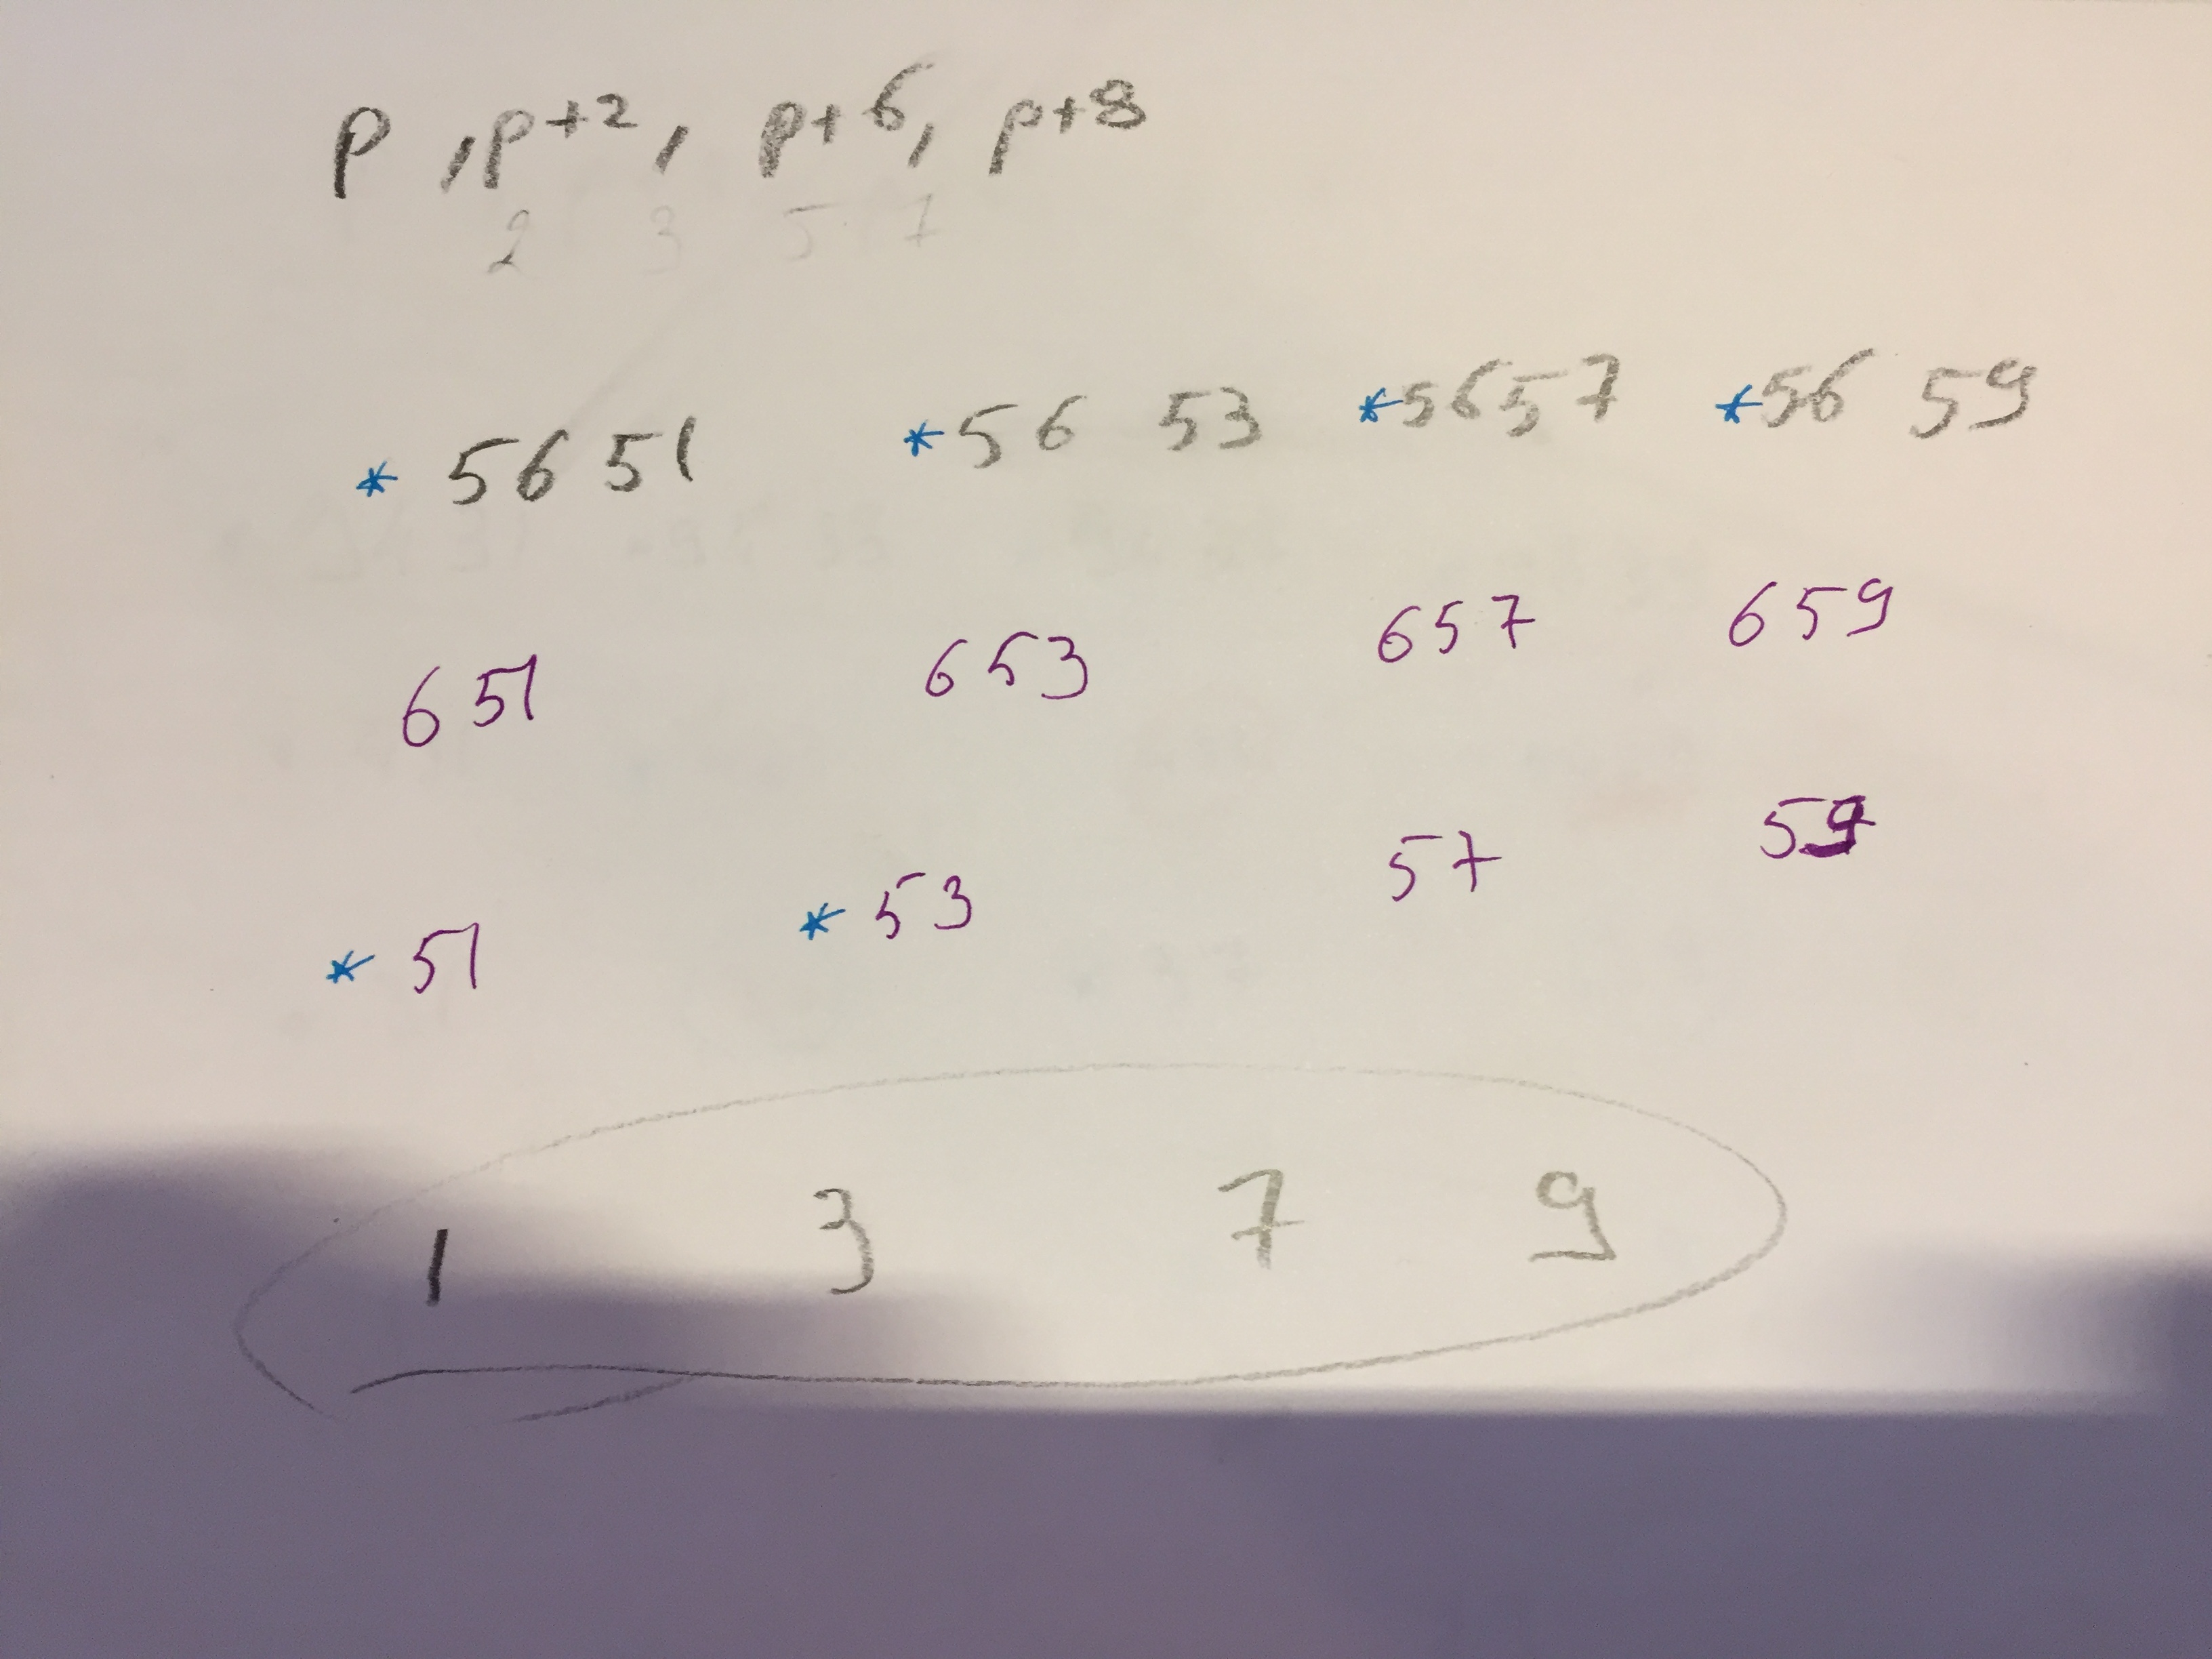 p , p+2 , p+6, p+8
2 3 5 7
* 5651 * 5653 * 5657 * 5659
651 653 657 659
* 51 * 53 57 59
1 3 7 9